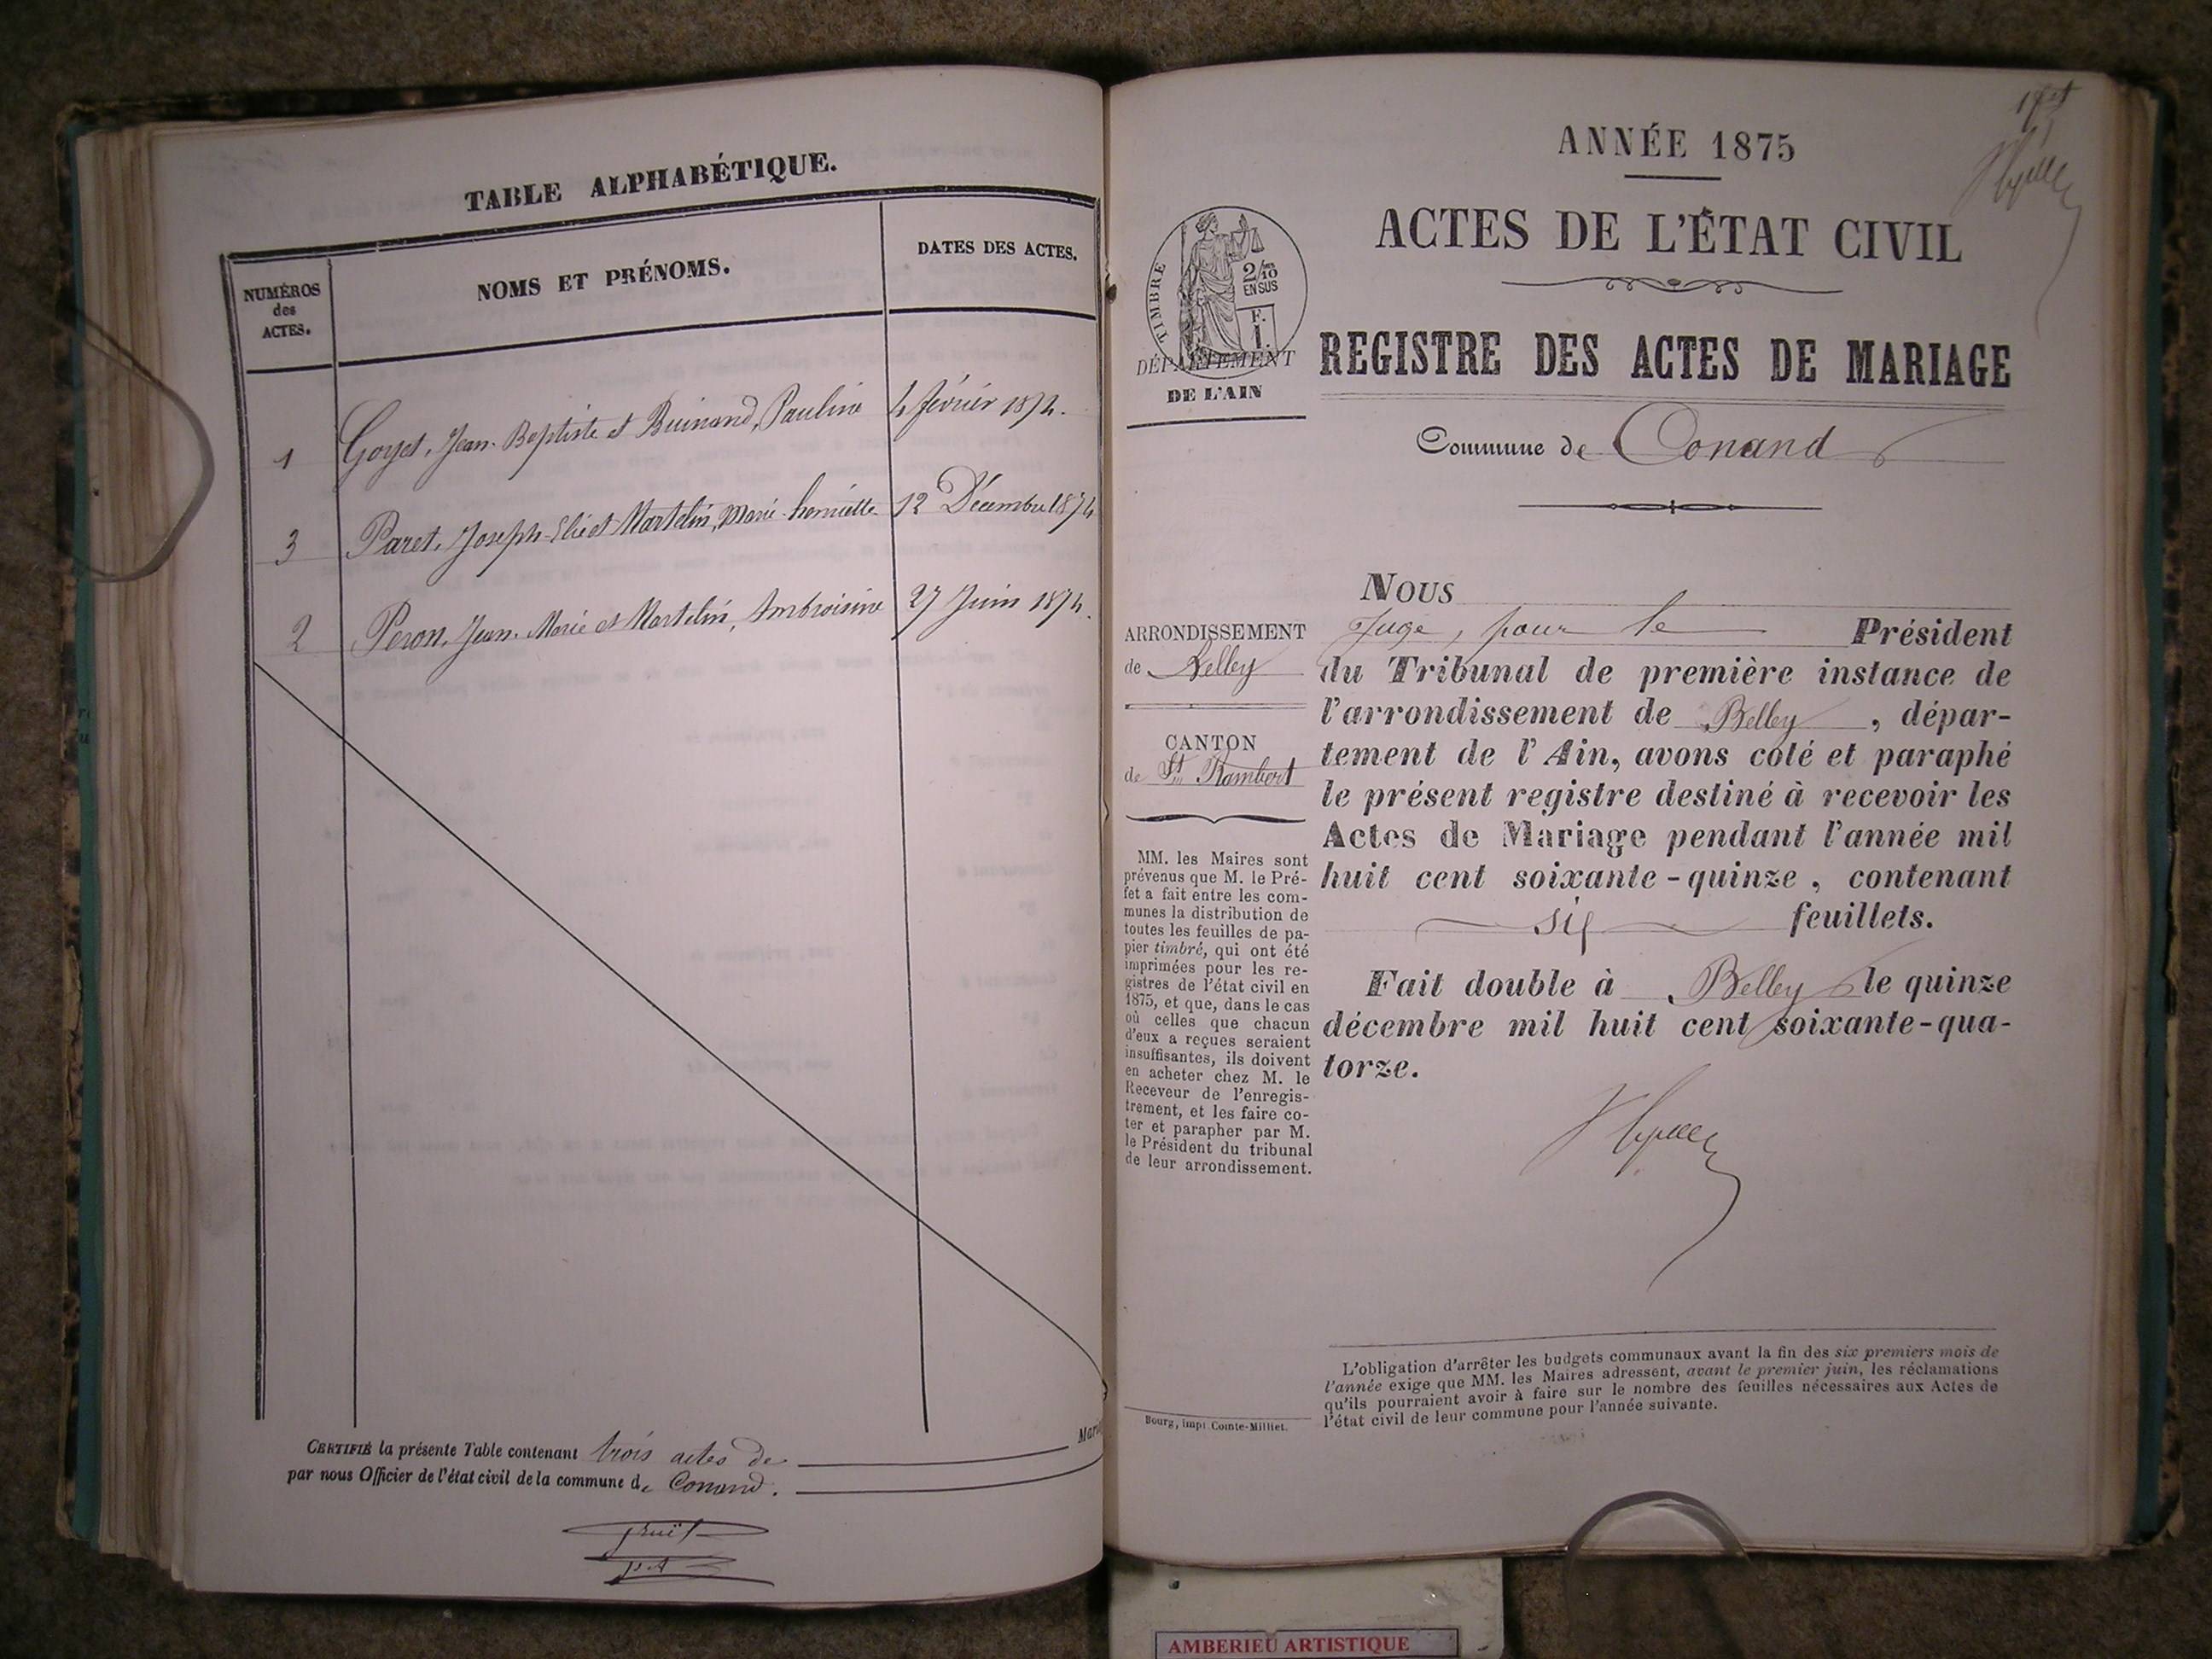 TABLE ALPHABÉTIQUE.
NUMÉROS
des
ACTES.
NOMS ET PRÉNOMS.
DATES DES ACTES.
1 Goyet, Jean-Baptiste et Buinand, Pauline 4 février 1874.
3 Paret, Joseph-Elie et Martelin, Marie-henriette 12 Décembre 1874
2 Peron, Jean-Marie et Martelin, Ambroisine 27 Juin 1874.
CERTIFIÉ la présente Table contenant trois actes de Mari
par nous Officier de l'état civil de la commune de Conand.
1er
ANNÉE 1875
ACTES DE L'ÉTAT CIVIL
TIMBRE
2/10 EN SUS
F. 1.
DÉPARTEMENT
DE L'AIN
REGISTRE DES ACTES DE MARIAGE
Commune de Conand
ARRONDISSEMENT
de Belley
CANTON
de St Rambert
MM. les Maires sont
prévenus que M. le Pré-
fet a fait entre les com-
munes la distribution de
toutes les feuilles de pa-
pier timbré, qui ont été
imprimées pour les re-
gistres de l'état civil en
1875, et que, dans le cas
où celles que chacun
d'eux a reçues seraient
insuffisantes, ils doivent
en acheter chez M. le
Receveur de l'enregis-
trement, et les faire co-
ter et parapher par M.
le Président du tribunal
de leur arrondissement.
Bourg, impr Comte-Milliet.
NOUS
Juge, pour le Président
du Tribunal de première instance de
l'arrondissement de Belley, dépar-
tement de l'Ain, avons coté et paraphé
le présent registre destiné à recevoir les
Actes de Mariage pendant l'année mil
huit cent soixante-quinze, contenant
six feuillets.
Fait double à Belley le quinze
décembre mil huit cent soixante-qua-
torze.
L'obligation d'arrêter les budgets communaux avant la fin des six premiers mois de
l'année exige que MM. les Maires adressent, avant le premier juin, les réclamations
qu'ils pourraient avoir à faire sur le nombre des feuilles nécessaires aux Actes de
l'état civil de leur commune pour l'année suivante.
AMBERIEU ARTISTIQUE